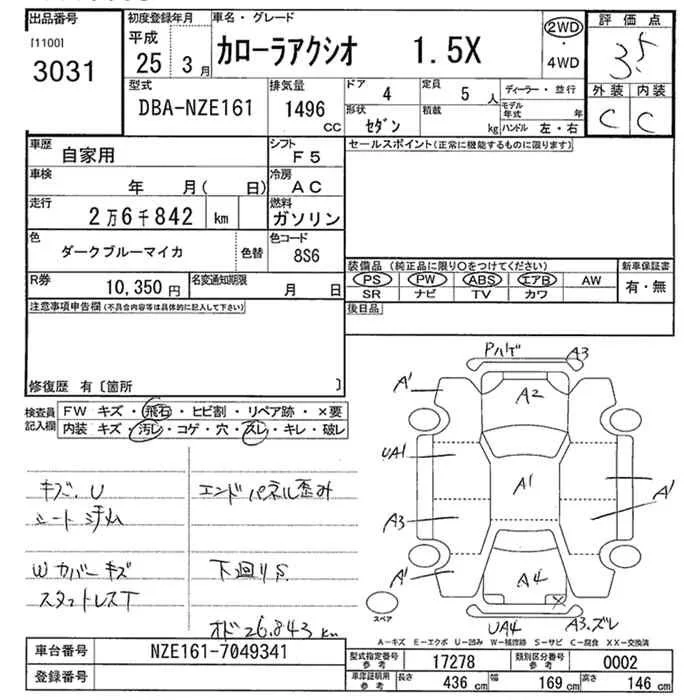 出品番号
[1100]
3031
初度登録年月
平成
25 3月
車名・グレード
カローラアクシオ 1.5X
2WD
・
4WD
評価点
3.5
外装 内装
C C
型式
DBA-NZE161
排気量
1496
CC
ドア
4
定員
5 人
形状
セダン
積載
kg
ディーラー・並行
モデル年式 年
ハンドル 左・右
車歴
自家用
シフト
F5
車検
年 月( 日)
冷房
AC
走行
2万6千842 km
燃料
ガソリン
色
ダークブルーマイカ
色替
色コード
8S6
R券
10,350円
名変通知期限
月 日
セールスポイント(正常に機能するものに限ります)
装備品 (純正品に限り〇をつけてください)
新車保証書
PS PW ABS エアB AW
SR ナビ TV カワ
有・無
後日品
注意事項申告欄(不具合内容等は具体的に記入して下さい)
修復歴 有〔箇所 〕
検査員記入欄
FW キズ・飛石・ヒビ割・リペア跡・×要
内装 キズ・汚レ・コゲ・穴・スレ・キレ・破レ
キズ、U
シート汚れ
Wカバーキズ
スタットレスT
エンドパネル歪み
下廻りS
オド26,843km
Pハゲ
A3
A1
A2
UA1
A1
A1
A3
A1
A4
UA4
A3.ズレ
スペア
A-キズ E-エクボ U-凹み W-補修跡 S-サビ C-腐食 XX-交換済
車台番号
NZE161-7049341
登録番号
型式指定番号
参考
17278
類別区分番号
参考
0002
車庫証明用
参考
長さ
436 cm
幅
169 cm
高さ
146 cm